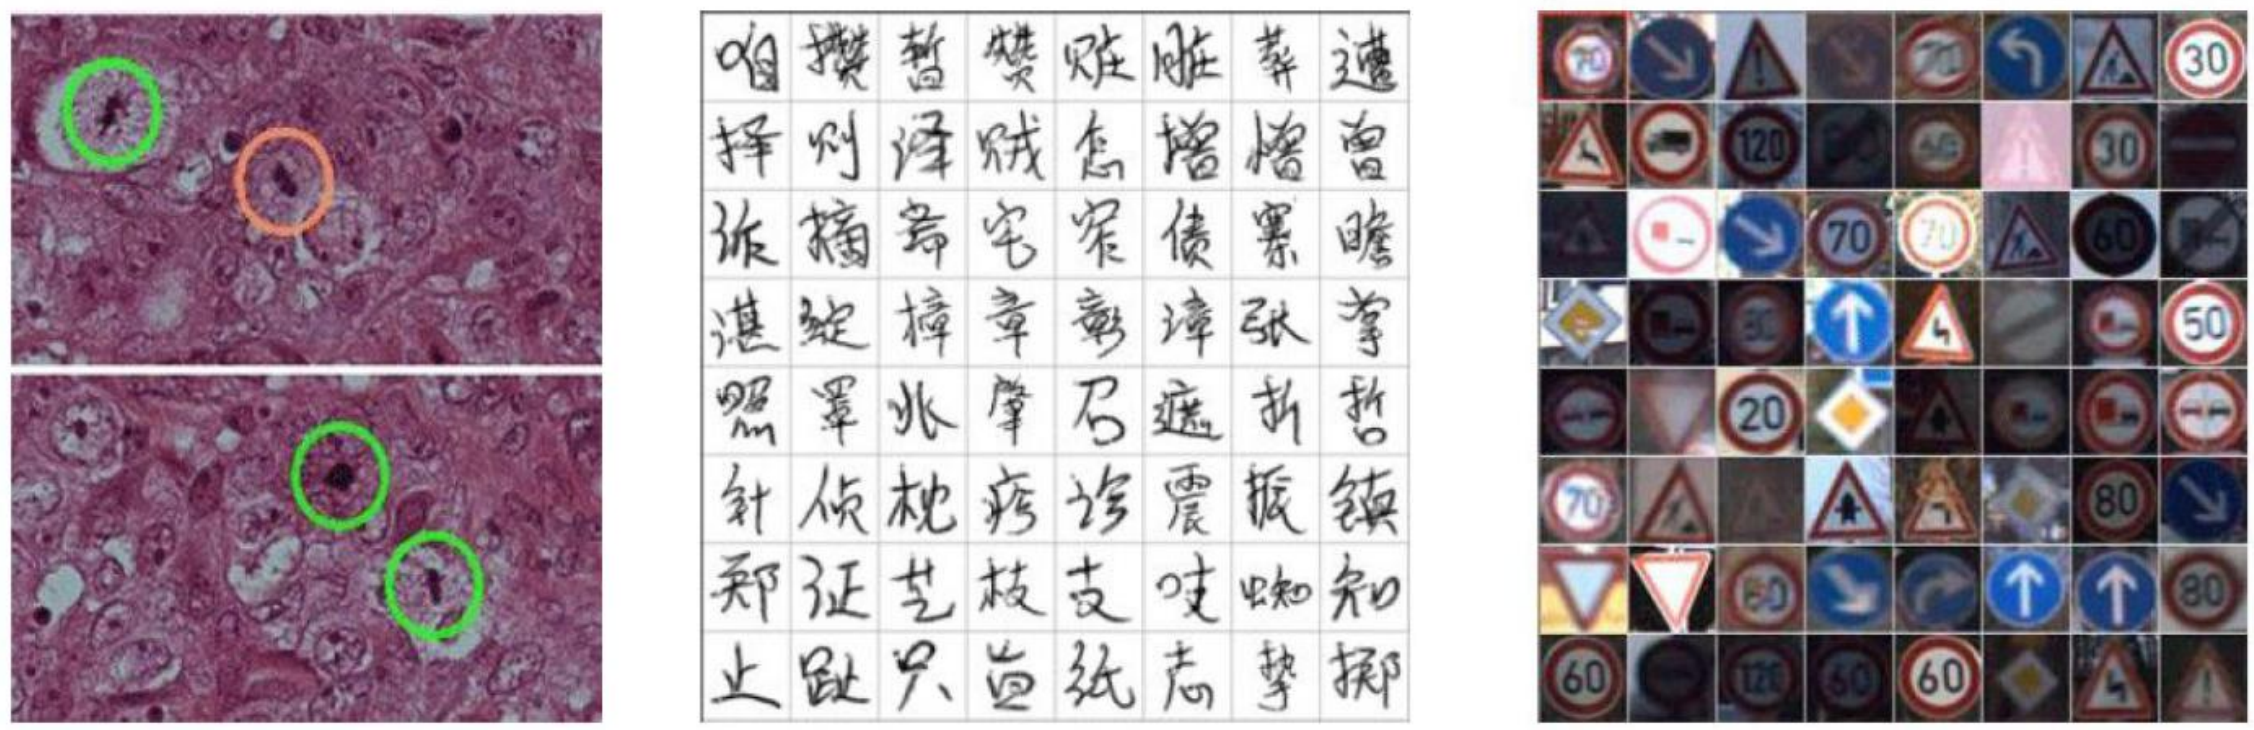 咱 攒 暂 赞 赃 脏 葬 遭
择 则 泽 贼 怎 增 憎 曾
诈 摘 斋 宅 窄 债 寨 瞻
湛 绽 樟 章 彰 漳 张 掌
照 罩 兆 肇 召 遮 折 哲
针 侦 枕 疹 诊 震 振 镇
郑 证 芝 枝 支 吱 蜘 知
止 趾 只 旨 纸 志 挚 掷
70 70 30
120 60 30
70 70 60
50
20
70 80
80
60 120 60 60